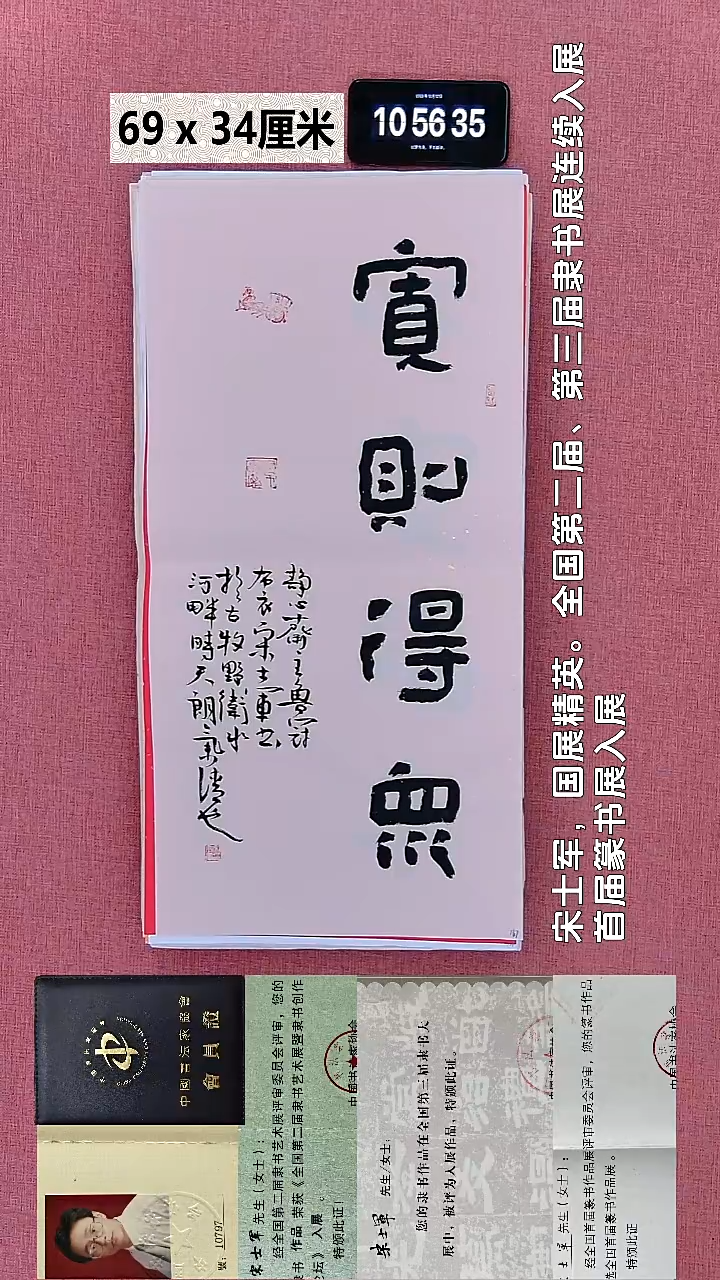 69 x 34厘米
10 56 35
寬則得眾
靜心齋主魯尉
布衣宋士軍書
於古牧野衛水
河畔時天朗氣清也
宋士军，国展精英。全国第二届、第三届隶书展连续入展
首届篆书展入展
中國書法家協會
會員證
號：10797
宋士军 先生（女士）：
经全国第二届隶书艺术展评审委员会评审，您的
书 作品 荣获《全国第二届隶书艺术展暨隶书创作
论坛》入展。
特颁此证！
中国书法家协会
宋士軍 先生/女士：
您的隶书作品在全国第三届隶书大
展中，被评为入展作品，特颁此证。
士军 先生（女士）：
经全国首届篆书作品展评审委员会评审，您的篆书作品
选全国首届篆书作品展。
特颁此证